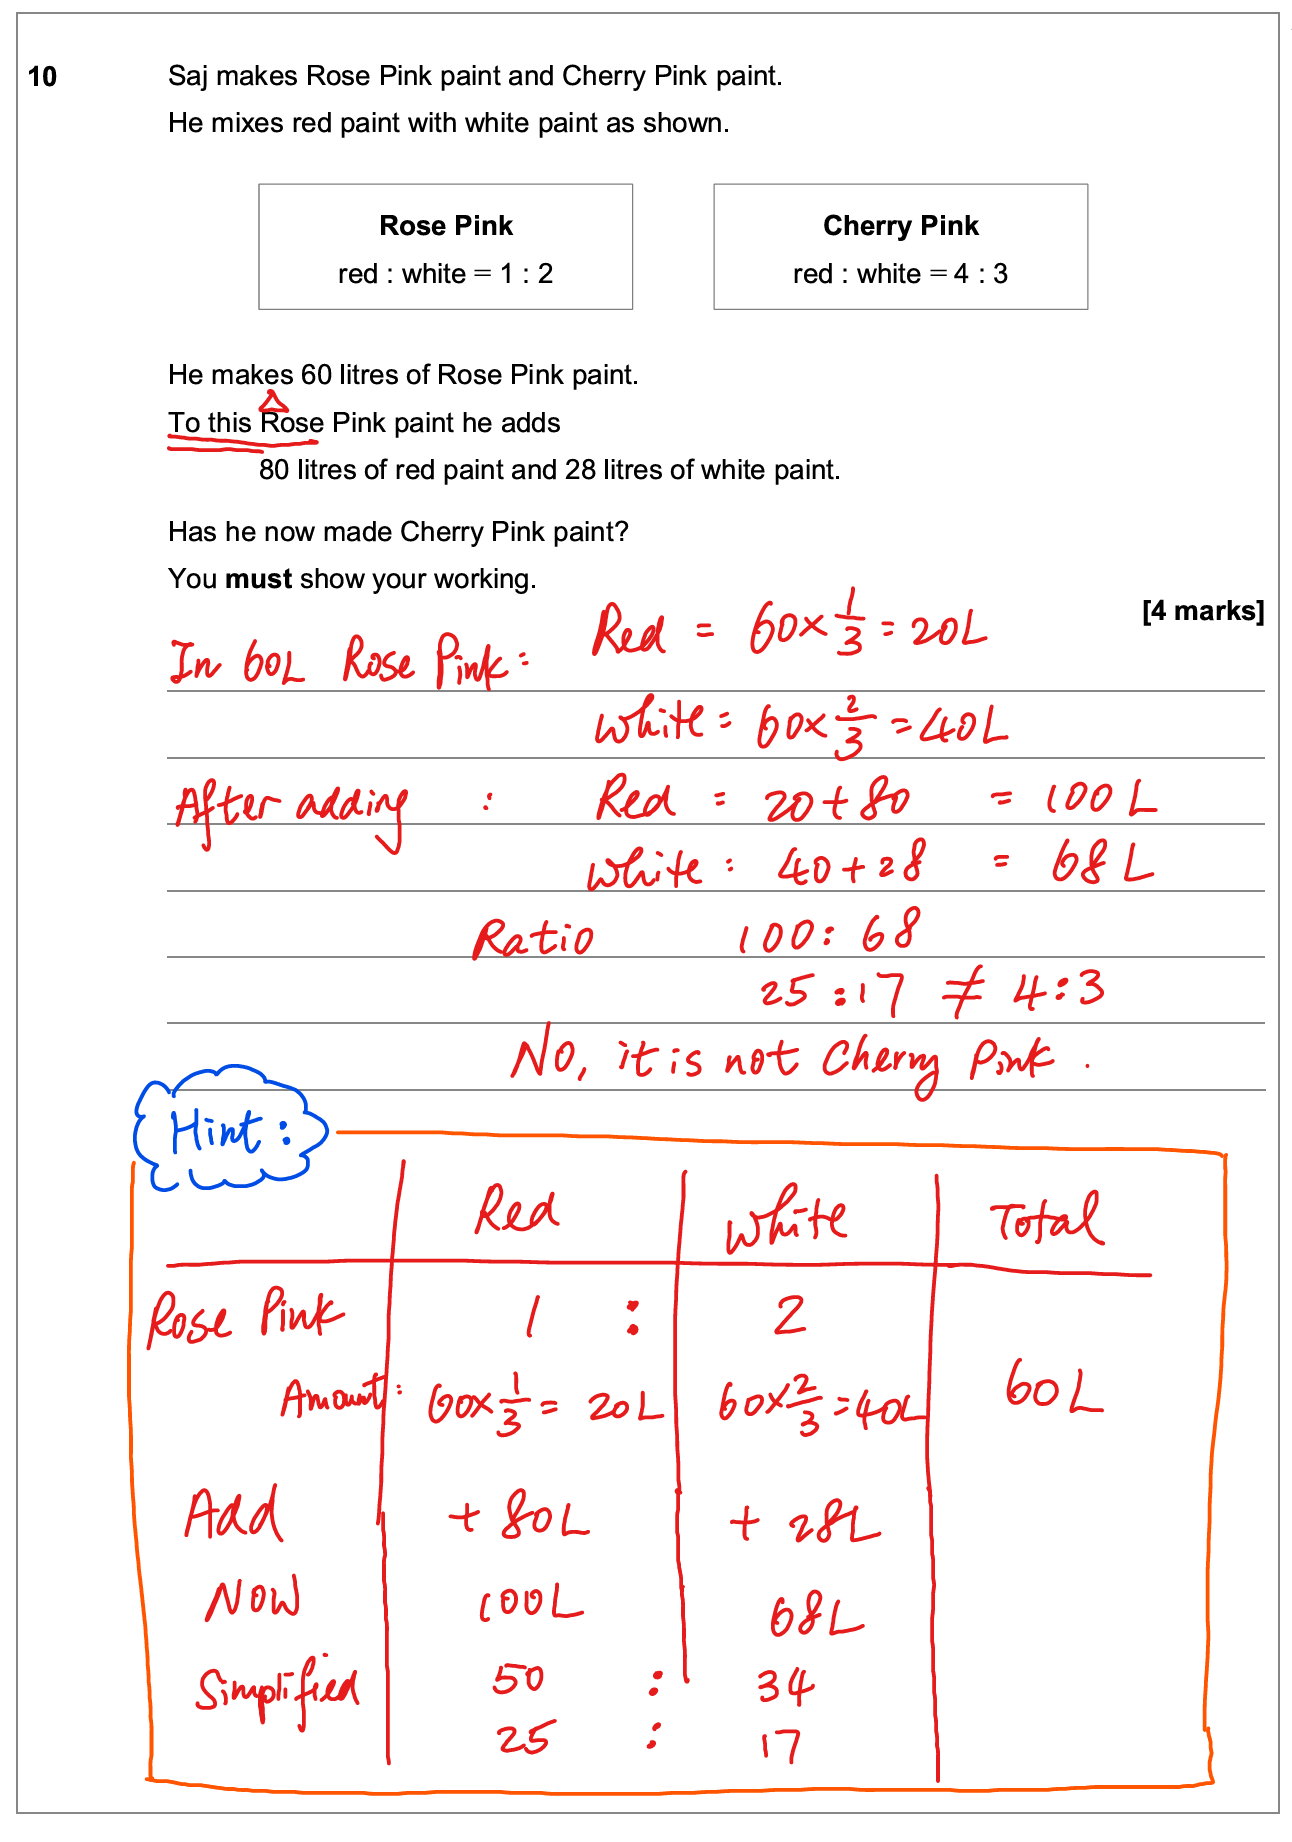 10 Saj makes Rose Pink paint and Cherry Pink paint.
He mixes red paint with white paint as shown.
Rose Pink
red : white = 1 : 2
Cherry Pink
red : white = 4 : 3
He makes 60 litres of Rose Pink paint.
To this Rose Pink paint he adds
80 litres of red paint and 28 litres of white paint.
Has he now made Cherry Pink paint?
You must show your working.
[4 marks]
In 60L Rose Pink: Red = 60 × 1/3 = 20L
White = 60 × 2/3 = 40L
After adding : Red = 20 + 80 = 100 L
White : 40 + 28 = 68 L
Ratio 100 : 68
25 : 17 ≠ 4 : 3
No, it is not Cherry Pink.
Hint:
Red White Total
Rose Pink 1 : 2
Amount: 60 × 1/3 = 20L 60 × 2/3 = 40L 60L
Add + 80L + 28L
Now 100L 68L
Simplified 50 : 34
25 : 17